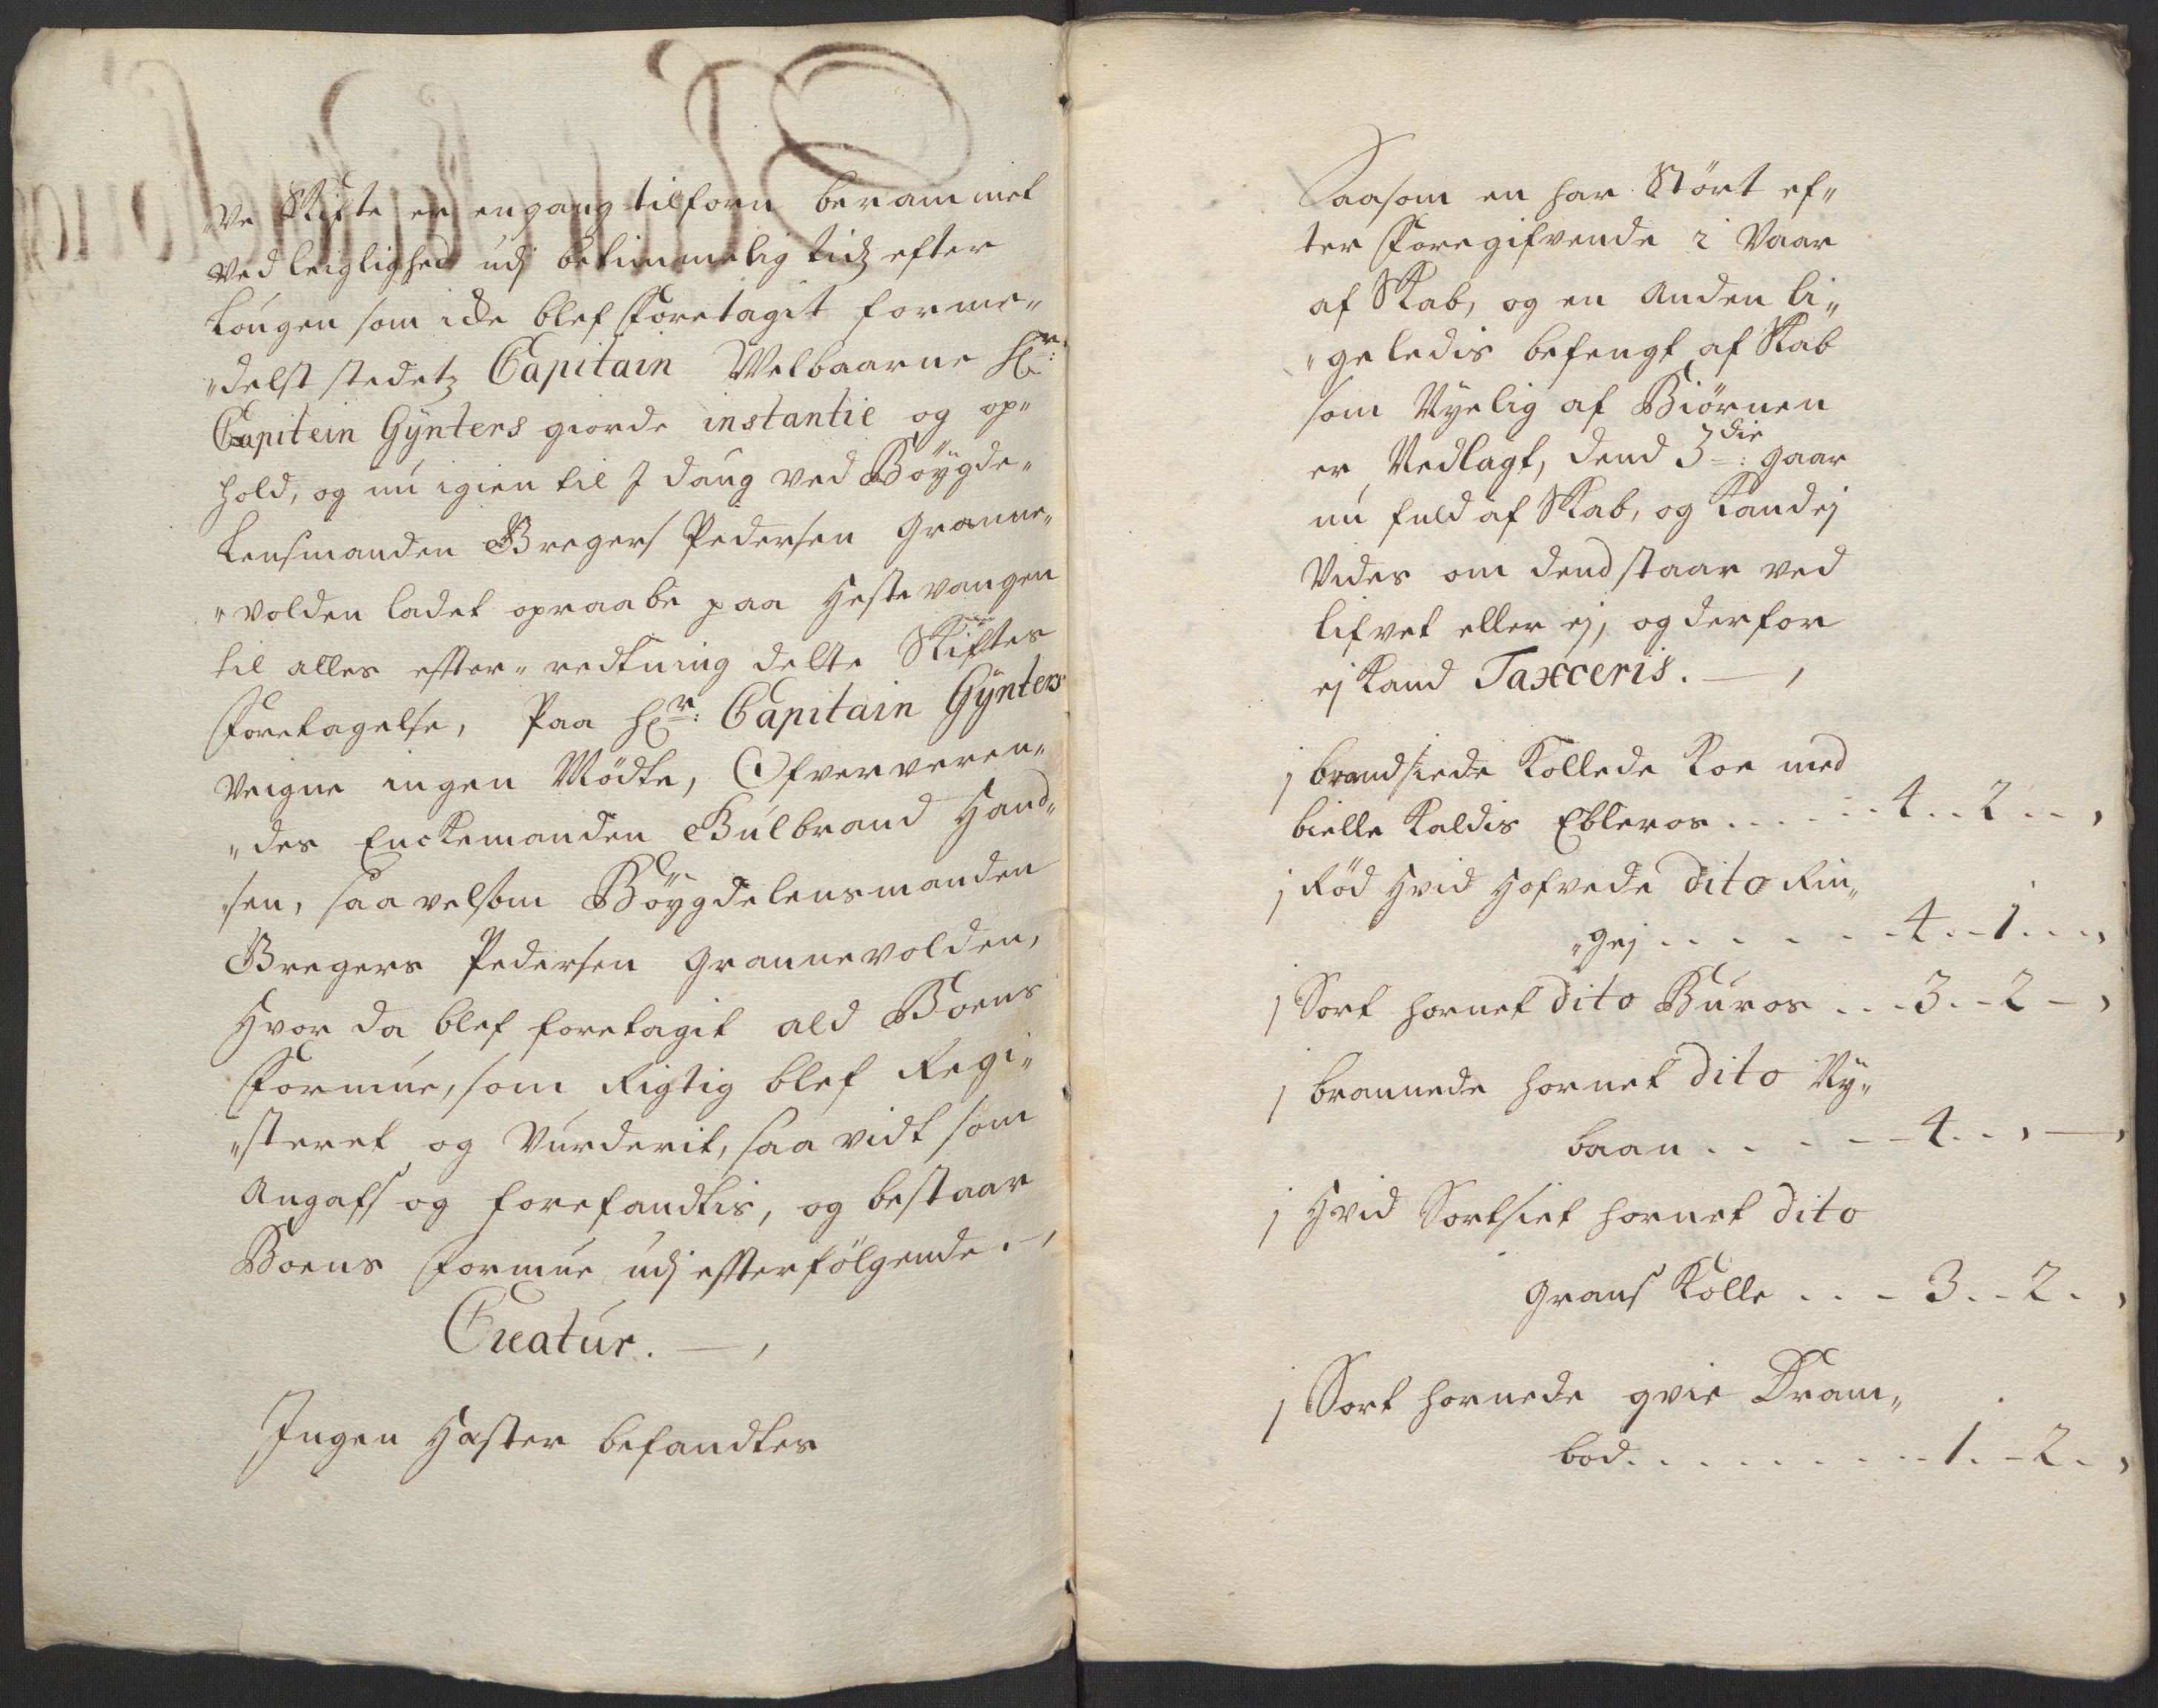 „Ve Skifte er engang tilforn berammet
Ved leiglighed udj beqvimmelig tid efter
Lougen som icke blef Foretagit forme„
„delst stedetz Capitain Welbaarne Hr:
Capitein Gÿnters giorde instantie og op„
hold, og nu igien til J daug ved Böÿgde„
Lensmanden Bregers Pedersen Granne„
„volden ladet opraabe paa Hestevangen
til alles effter„redtning dette Skiftes
Foretagelse, Paa Hr: Capitain Gÿnters
Veigne ingen Mödte, Ofververen„
„des Enckemanden Gulbrand Hand„
„sen, saavelsom Böÿgdelensmanden
Bregers Pedersen Grannevolden,
Hvor da blef foretagit ald Boens
Formue, som Rigtig blef Regi„
„steret og Vurderit, saavidt som
Angafs og forefandtis, og bestaar
Boens Formue udj effterfölgende.
Creatur.
Ingen Hester befandtes
Saasom en har Stört ef„
ter Foregifvende i Vaar
af Skab, og en Anden li„
„geledis befengt af Skab
som Nyelig af Biörnen
er Nedlagt, dend 3die: gaar
nu fuld af Skab, og Kand ej
Vides om dend staar ved
lifvet eller ej, og derfor
ej Kand Taxceris.
1 brandsiede Kollede Koe med
bielle Kaldis Ebleros . . . . . 4 . . 2 . .
1 Röd Hvid Hofvede dito Rin„
„gej . . . . . 4 . . 1 . . .
1 Sort hornet dito Buros . . . 3 . . 2 -
1 brannede hornet dito Ny„
baan . . . . . 4 . .
1 Hvid Sortsiet hornet dito
Grans Kolle . . . 3 . . 2 .
1 Sort hornede qvie Kram„
bod . . . . . . . . . 1 . - 2 .